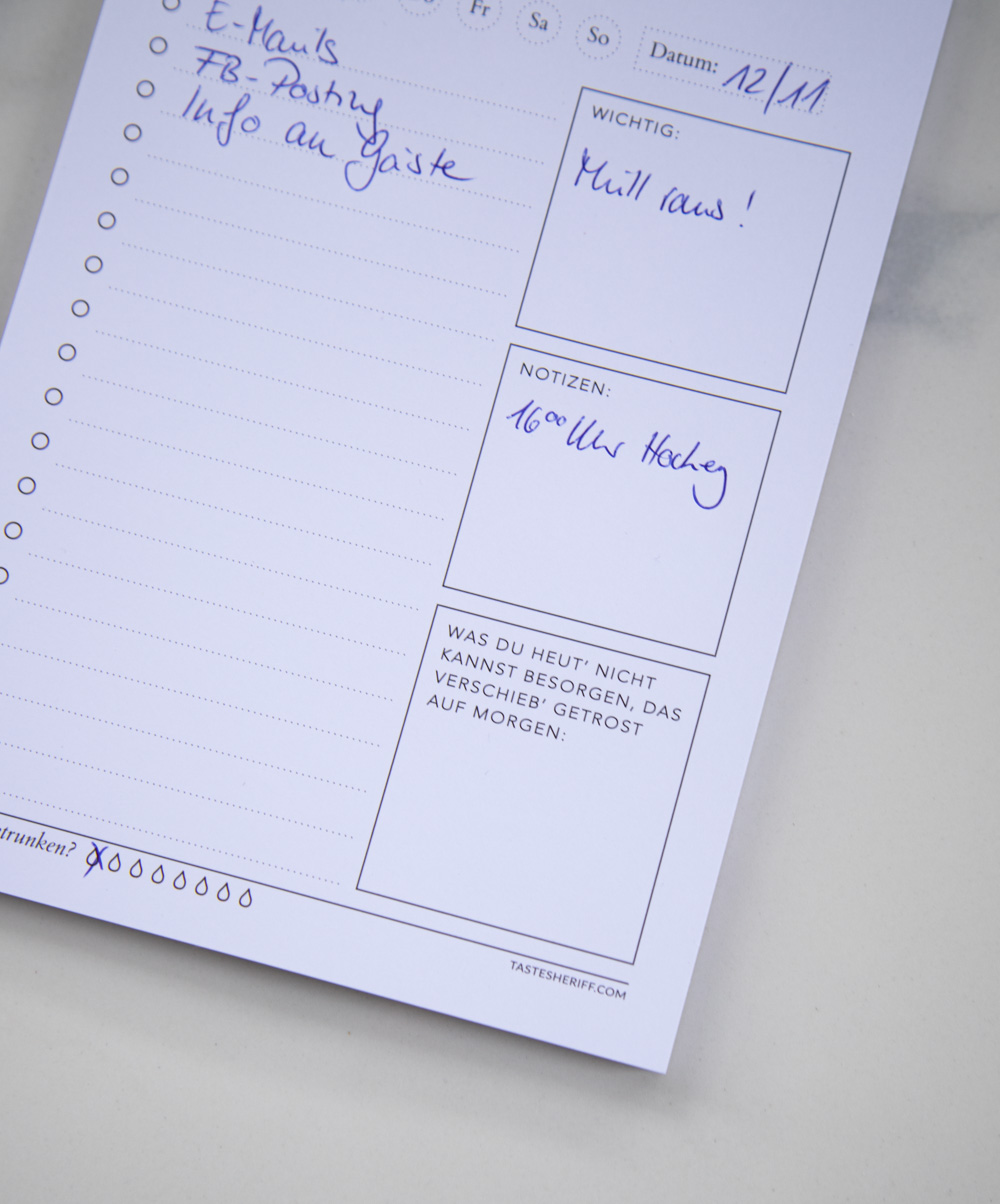 Fr Sa So Datum: 12/11
E-Mails
FB-Posting
Info an Gäste
WICHTIG:
Müll raus!
NOTIZEN:
16⁰⁰ Uhr Hocheg
WAS DU HEUT' NICHT
KANNST BESORGEN, DAS
VERSCHIEB' GETROST
AUF MORGEN:
trunken?
TASTESHERIFF.COM